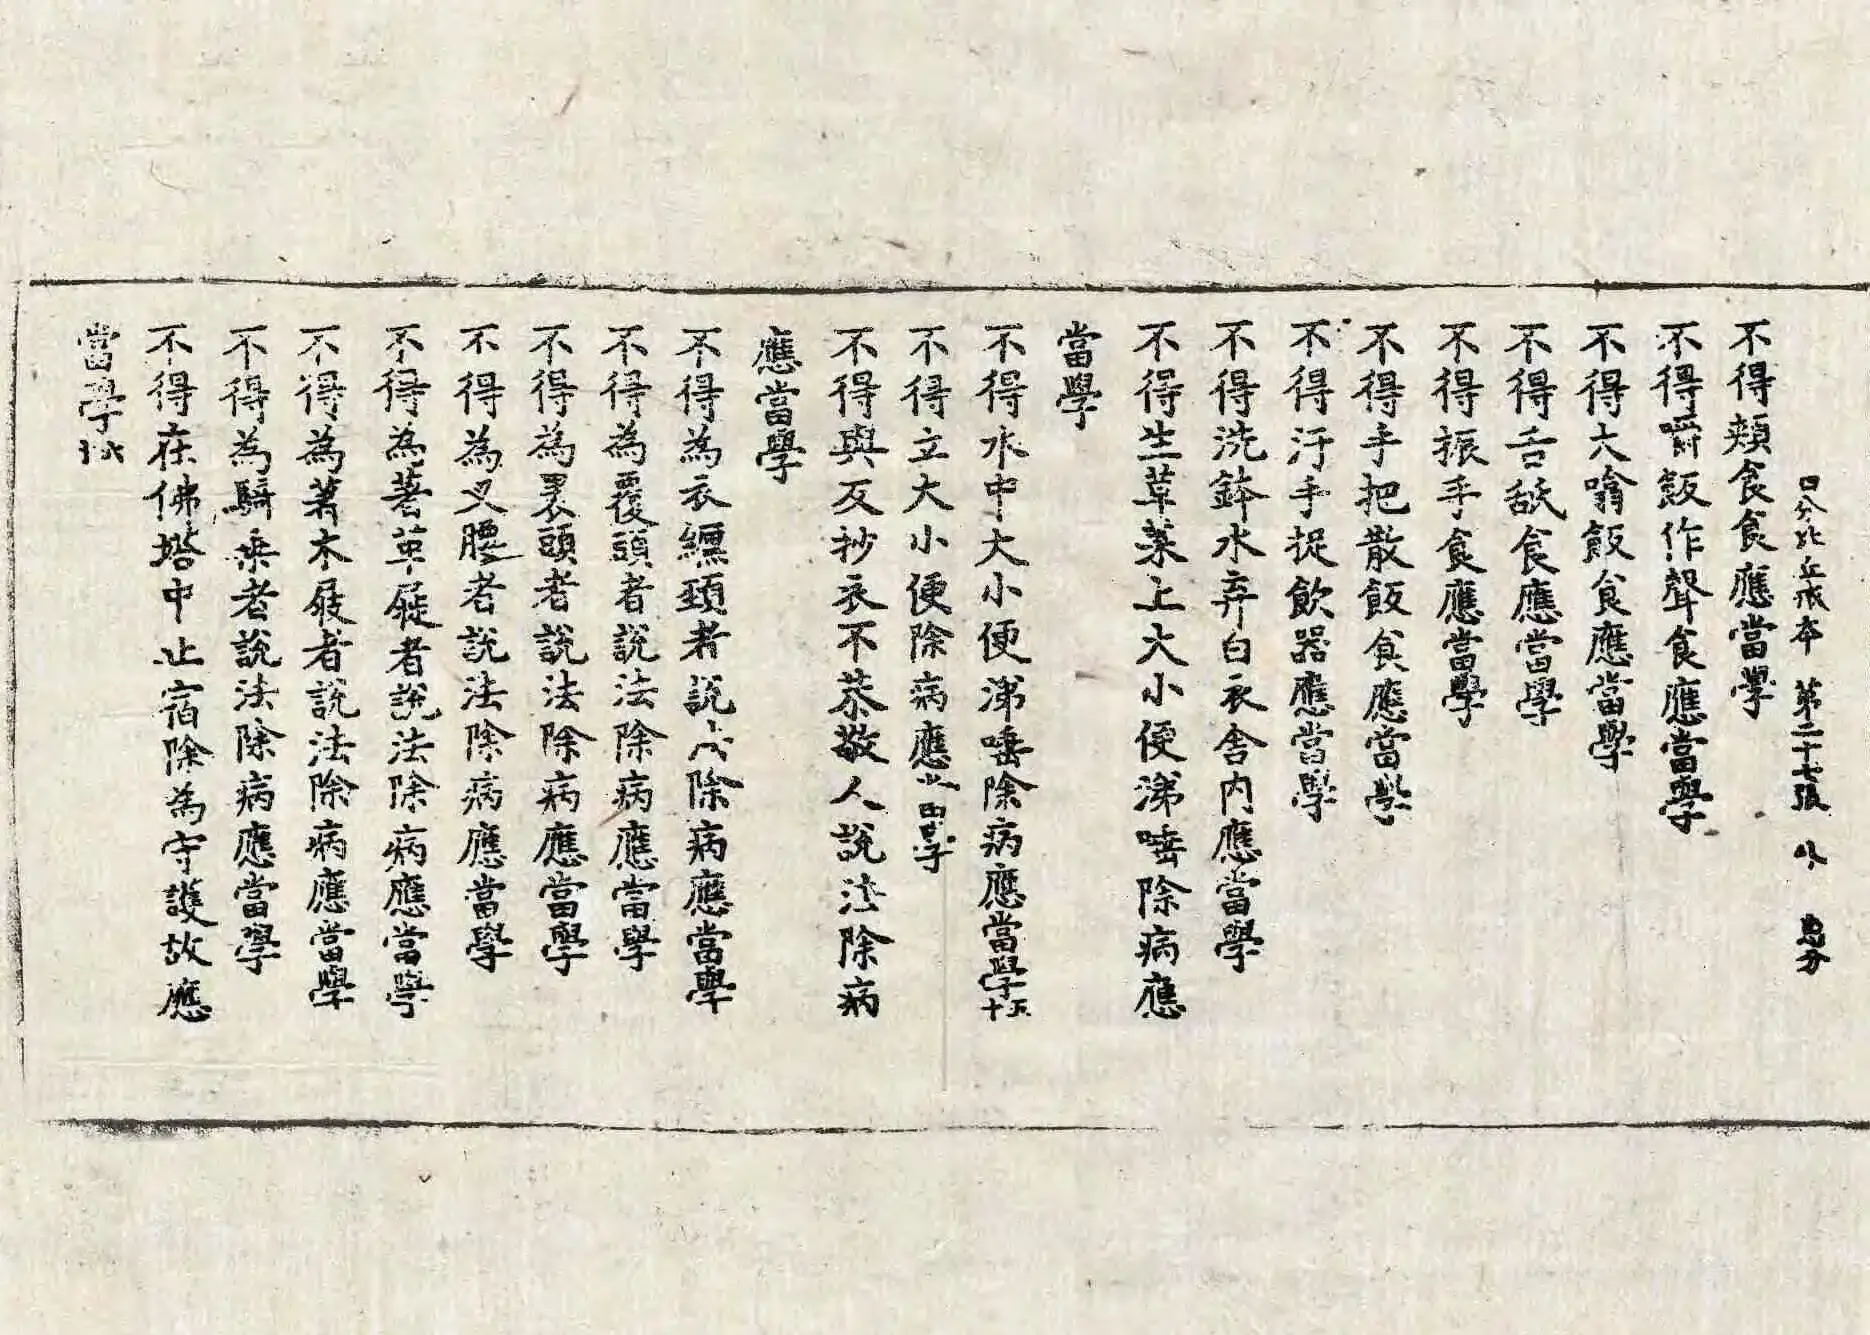 四分比丘戒本 第二十七張 外
不得頰食食應當學
不得嚼飯作聲食應當學
不得大噏飯食應當學
不得舌舐食應當學
不得振手食應當學
不得手把散飯食應當學
不得汙手捉飲器應當學
不得洗鉢水弃白衣舍內應當學
不得生草菜上大小便涕唾除病應
當學
不得水中大小便涕唾除病應當學五十
不得立大小便除病應當學
不得與反抄衣不恭敬人說法除病
應當學
不得為衣纏頸者說法除病應當學
不得為覆頭者說法除病應當學
不得為裹頭者說法除病應當學
不得為叉腰者說法除病應當學
不得為著革屣者說法除病應當學
不得為著木屐者說法除病應當學
不得為騎乘者說法除病應當學
不得在佛塔中止宿除為守護故應
當學